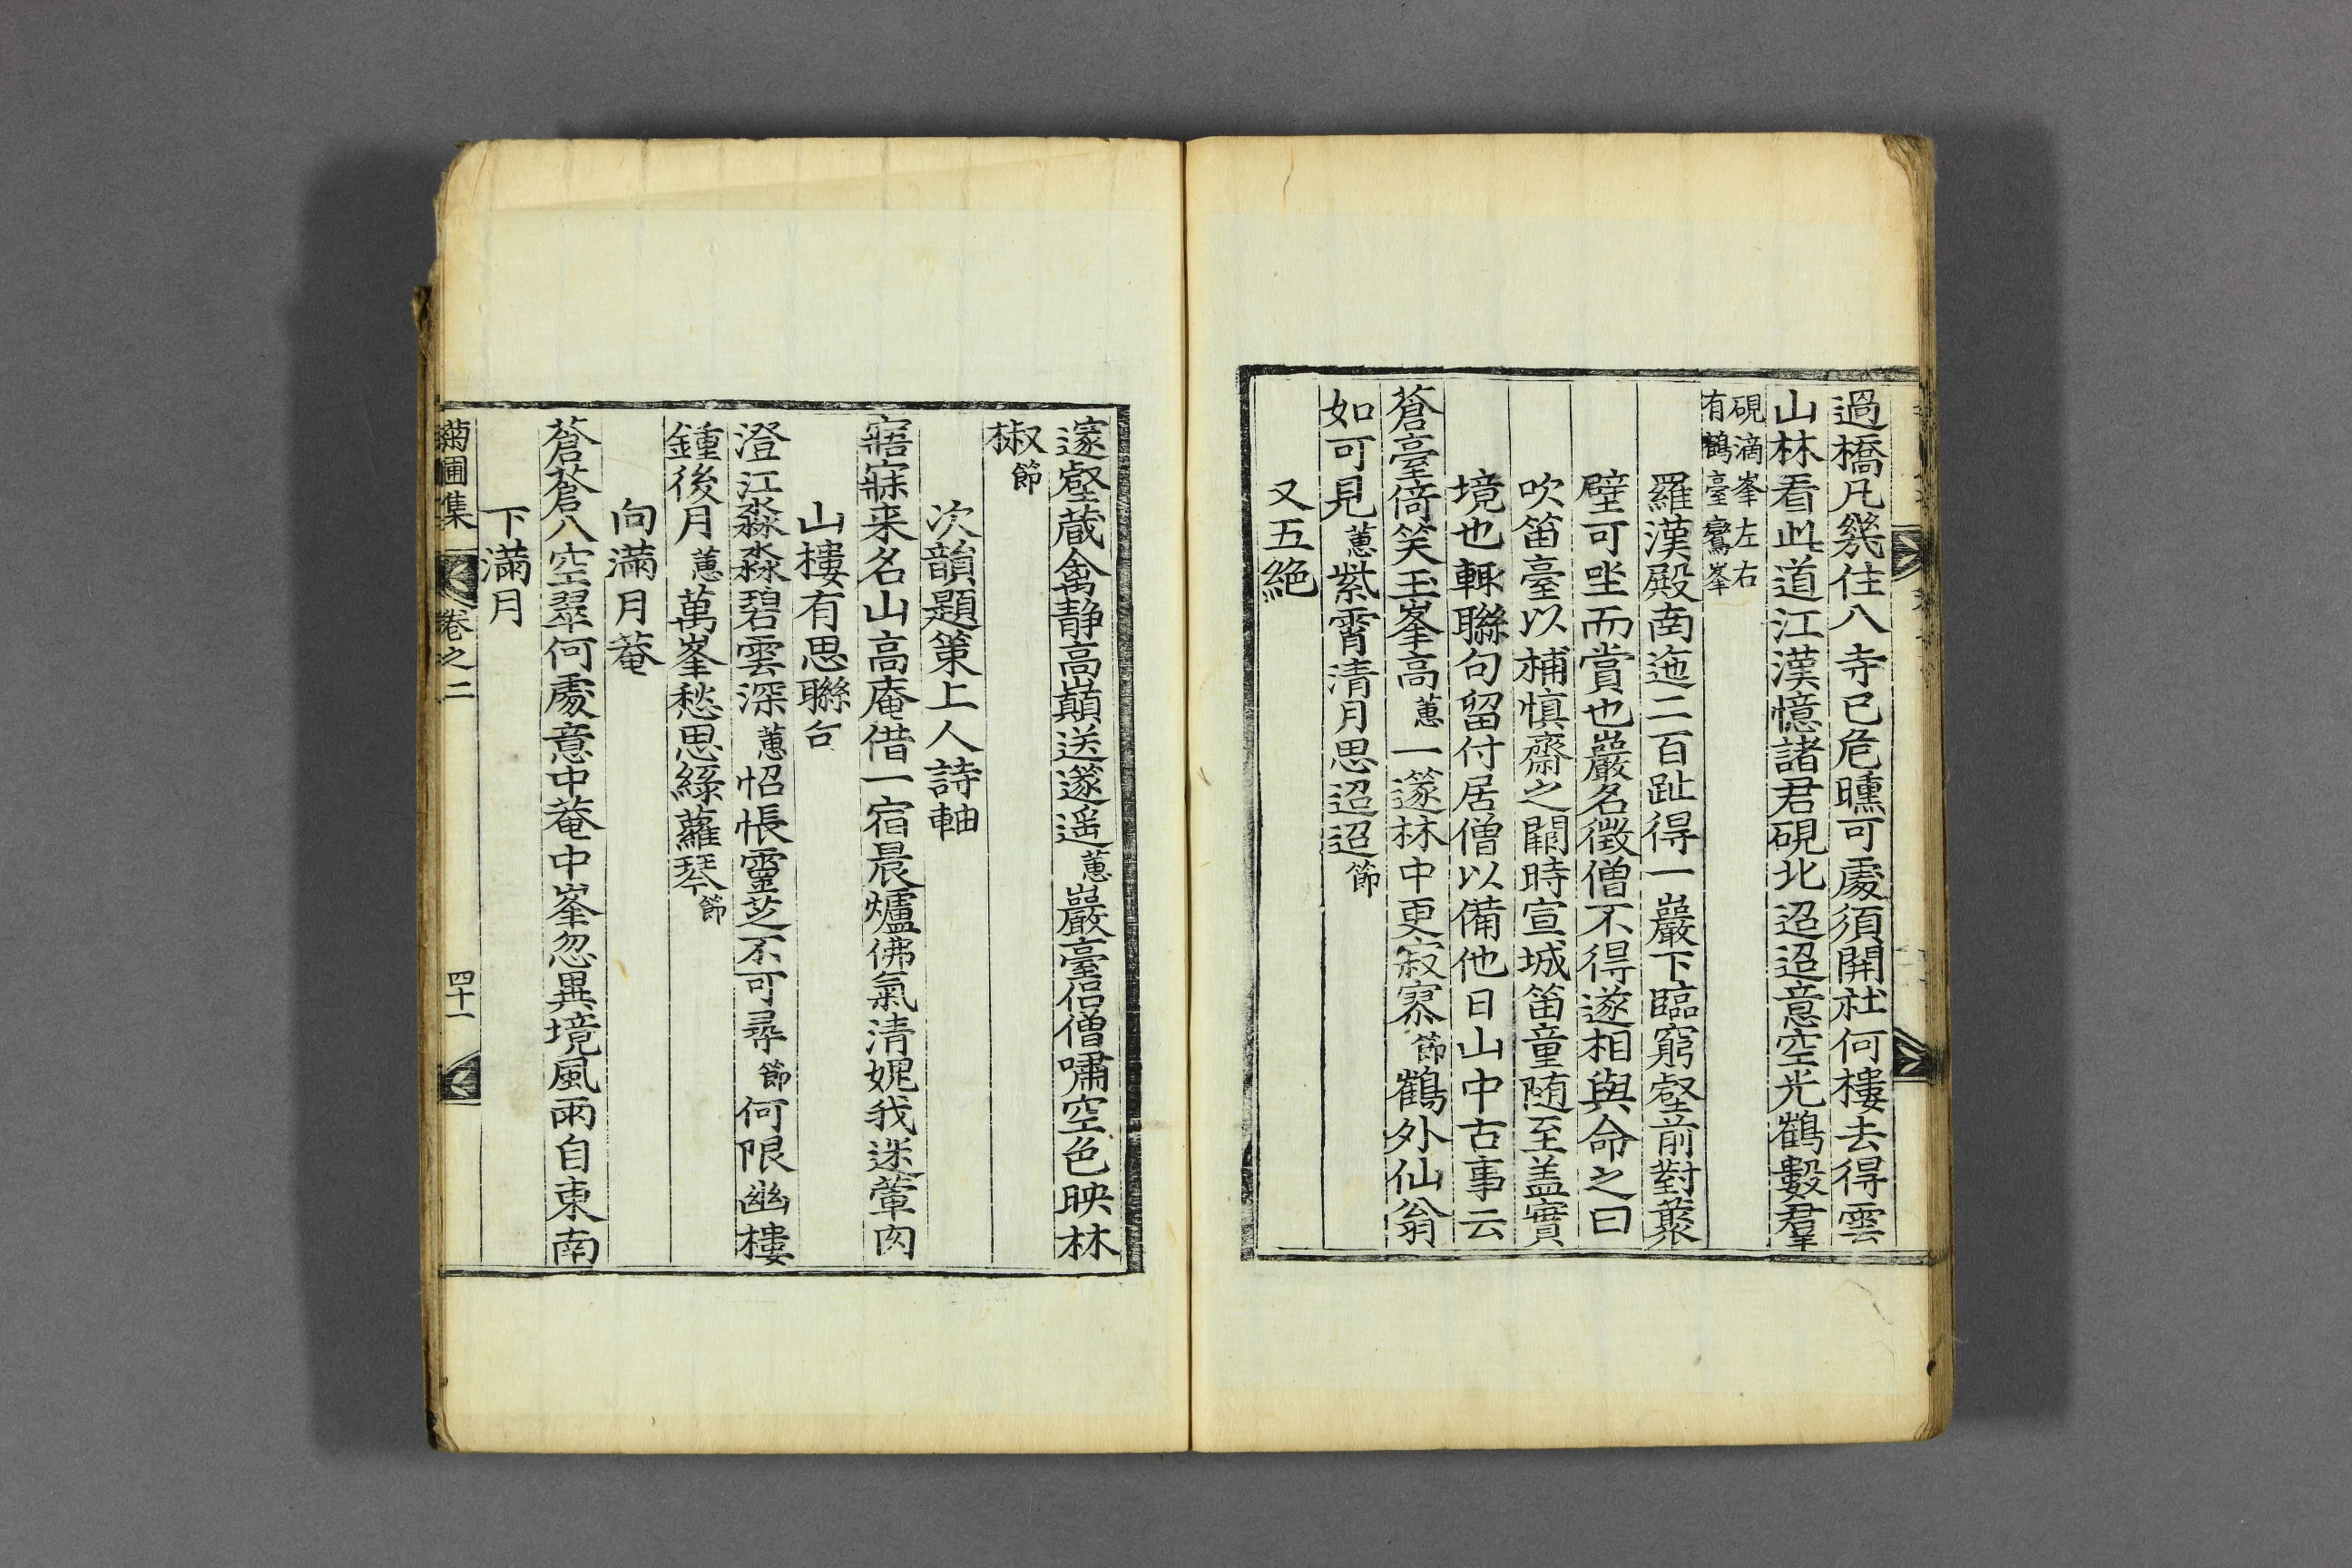 過橋凡幾住八寺已危曛可處須開社何樓去得雲
山林看此道江漢憶諸君硯北迢迢意空光鶴數羣
硯滴峯左右
有鶴臺鸞峯
羅漢殿南迤二百趾得一巖下臨窮壑前對叢
壁可坐而賞也巖名徵僧不得遂相與命之曰
吹笛臺以補愼齋之闕時宣城笛童随至盖實
境也輒聯句留付居僧以備他日山中古事云
蒼臺倚笑玉峯高蕙一篴林中更寂寥節鶴外仙翁
如可見蕙紫霄清月思迢迢節
又五絶
邃壑蔵禽静高巔送篴遥蕙巖臺侣僧嘯空色映林
椒節
次韻題策上人詩軸
寤寐来名山高庵借一宿晨爐佛氣清娓我迷葷肉
山樓有思聯句
澄江淼淼碧雲深蕙怊悵靈芝不可尋節何限幽樓
鍾後月蕙萬峯愁思綠蘿琴節
向滿月菴
蒼蒼八空翠何處意中菴中峯忽異境風雨自東南
下滿月
菊圃集 卷之二 四十一